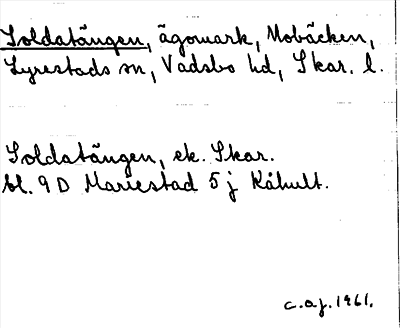 Soldatängen, ägomark, Mobäcken,
Lyrestads sn, Vadsbo hd, Skar. l.
Soldatängen, ek. Skar.
bl. 9 D Mariestad 5 j Kåhult.
c.a.j. 1961.